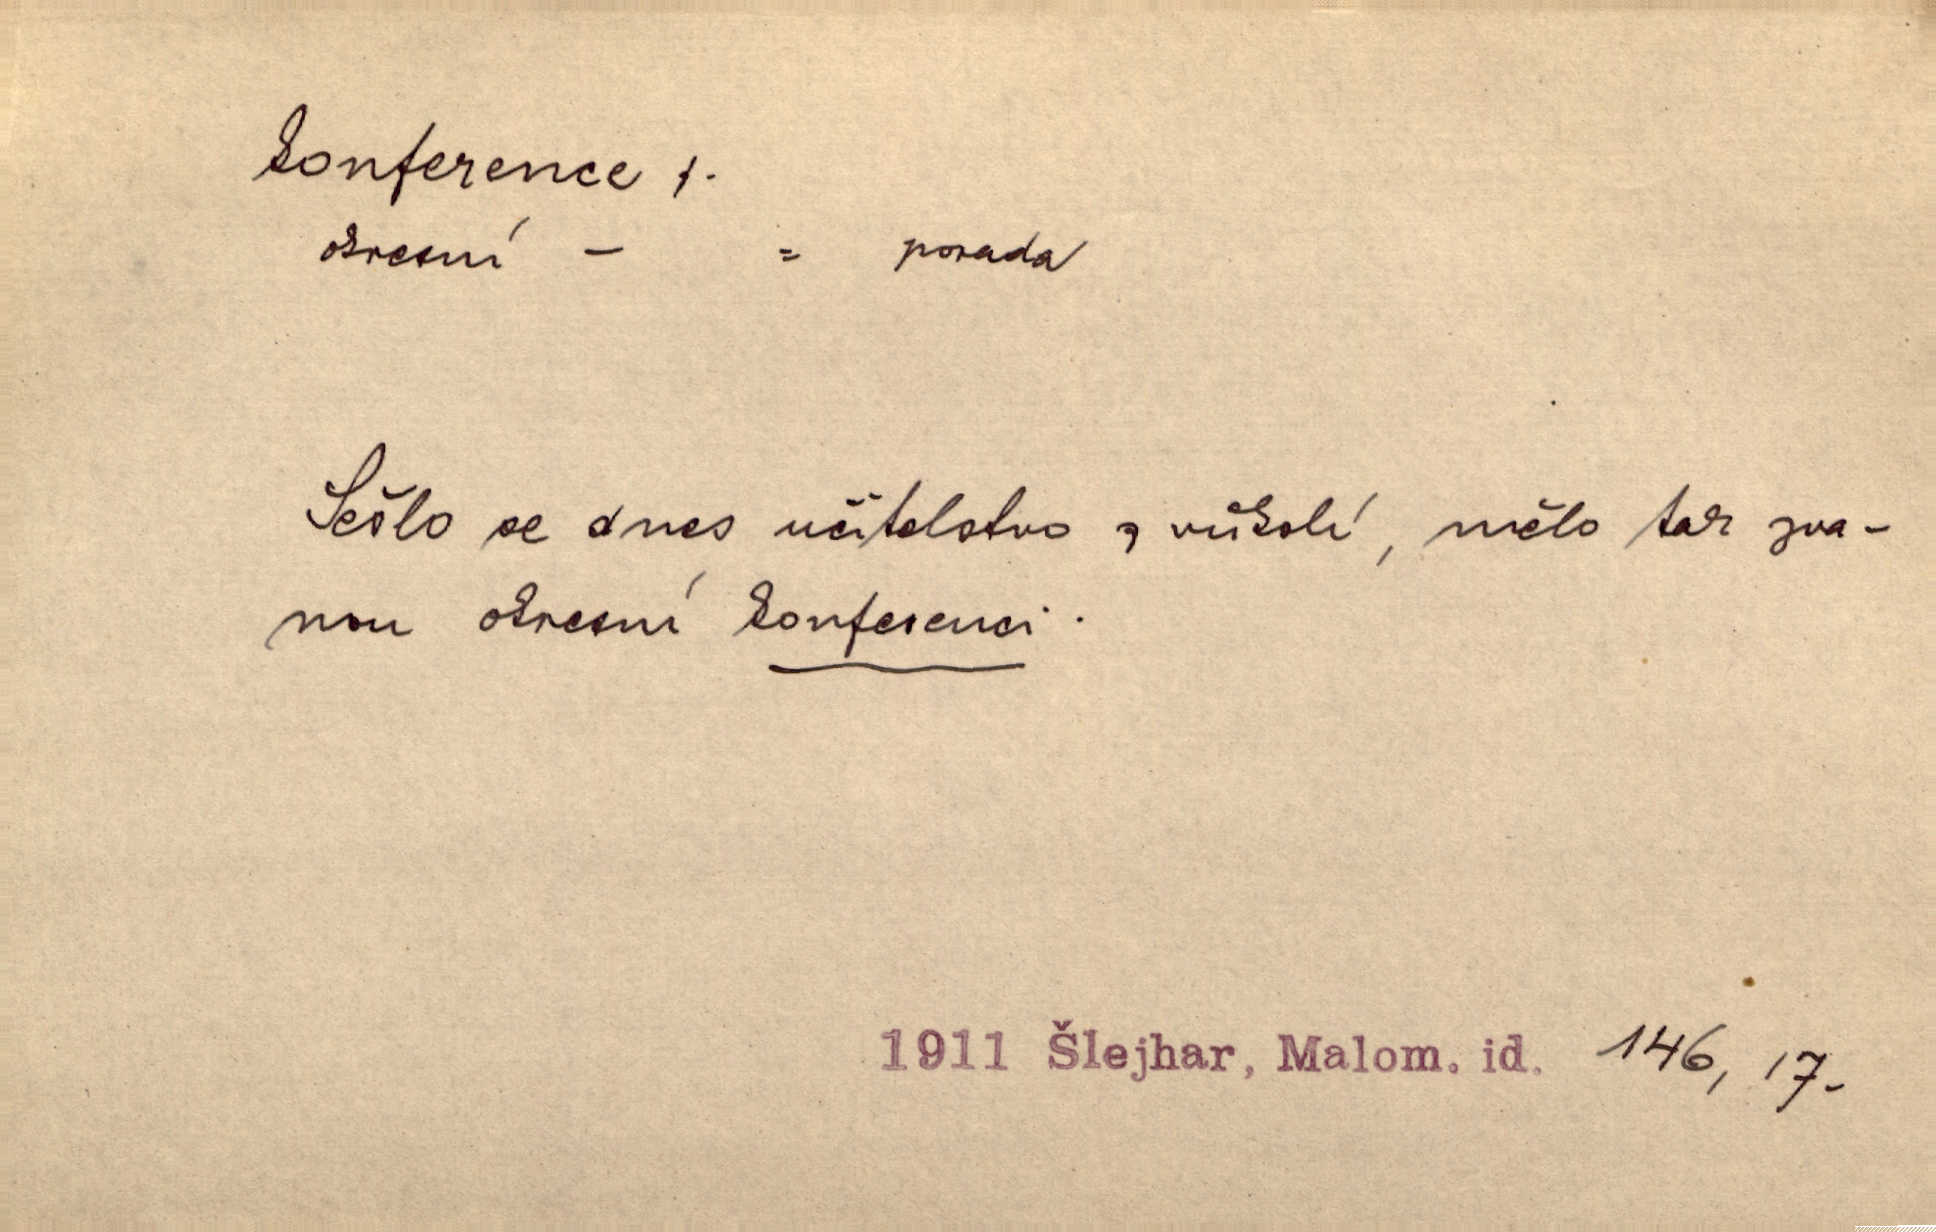 konference f.
okresní – = porada
Sešlo se dnes učitelstvo z vůkolí, mělo tak zva-
nou okresní konferenci.
1911 Šlejhar, Malom. id. 146, 17-